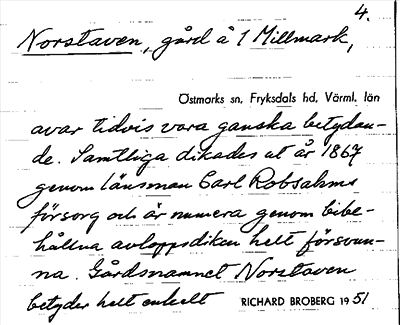 4.
Norstaven, gård å 1 Millmark,
Östmarks sn, Fryksdals hd, Värml. län
avar tidvis vara ganska betydan-
de. Samtliga dikades ut år 1867
genom länsman Carl Robsahms
försorg och är numera genom bibe-
hållna avloppsdiken helt försvun-
na. Gårdsnamnet Norstaven
betyder helt enkelt RICHARD BROBERG 1951